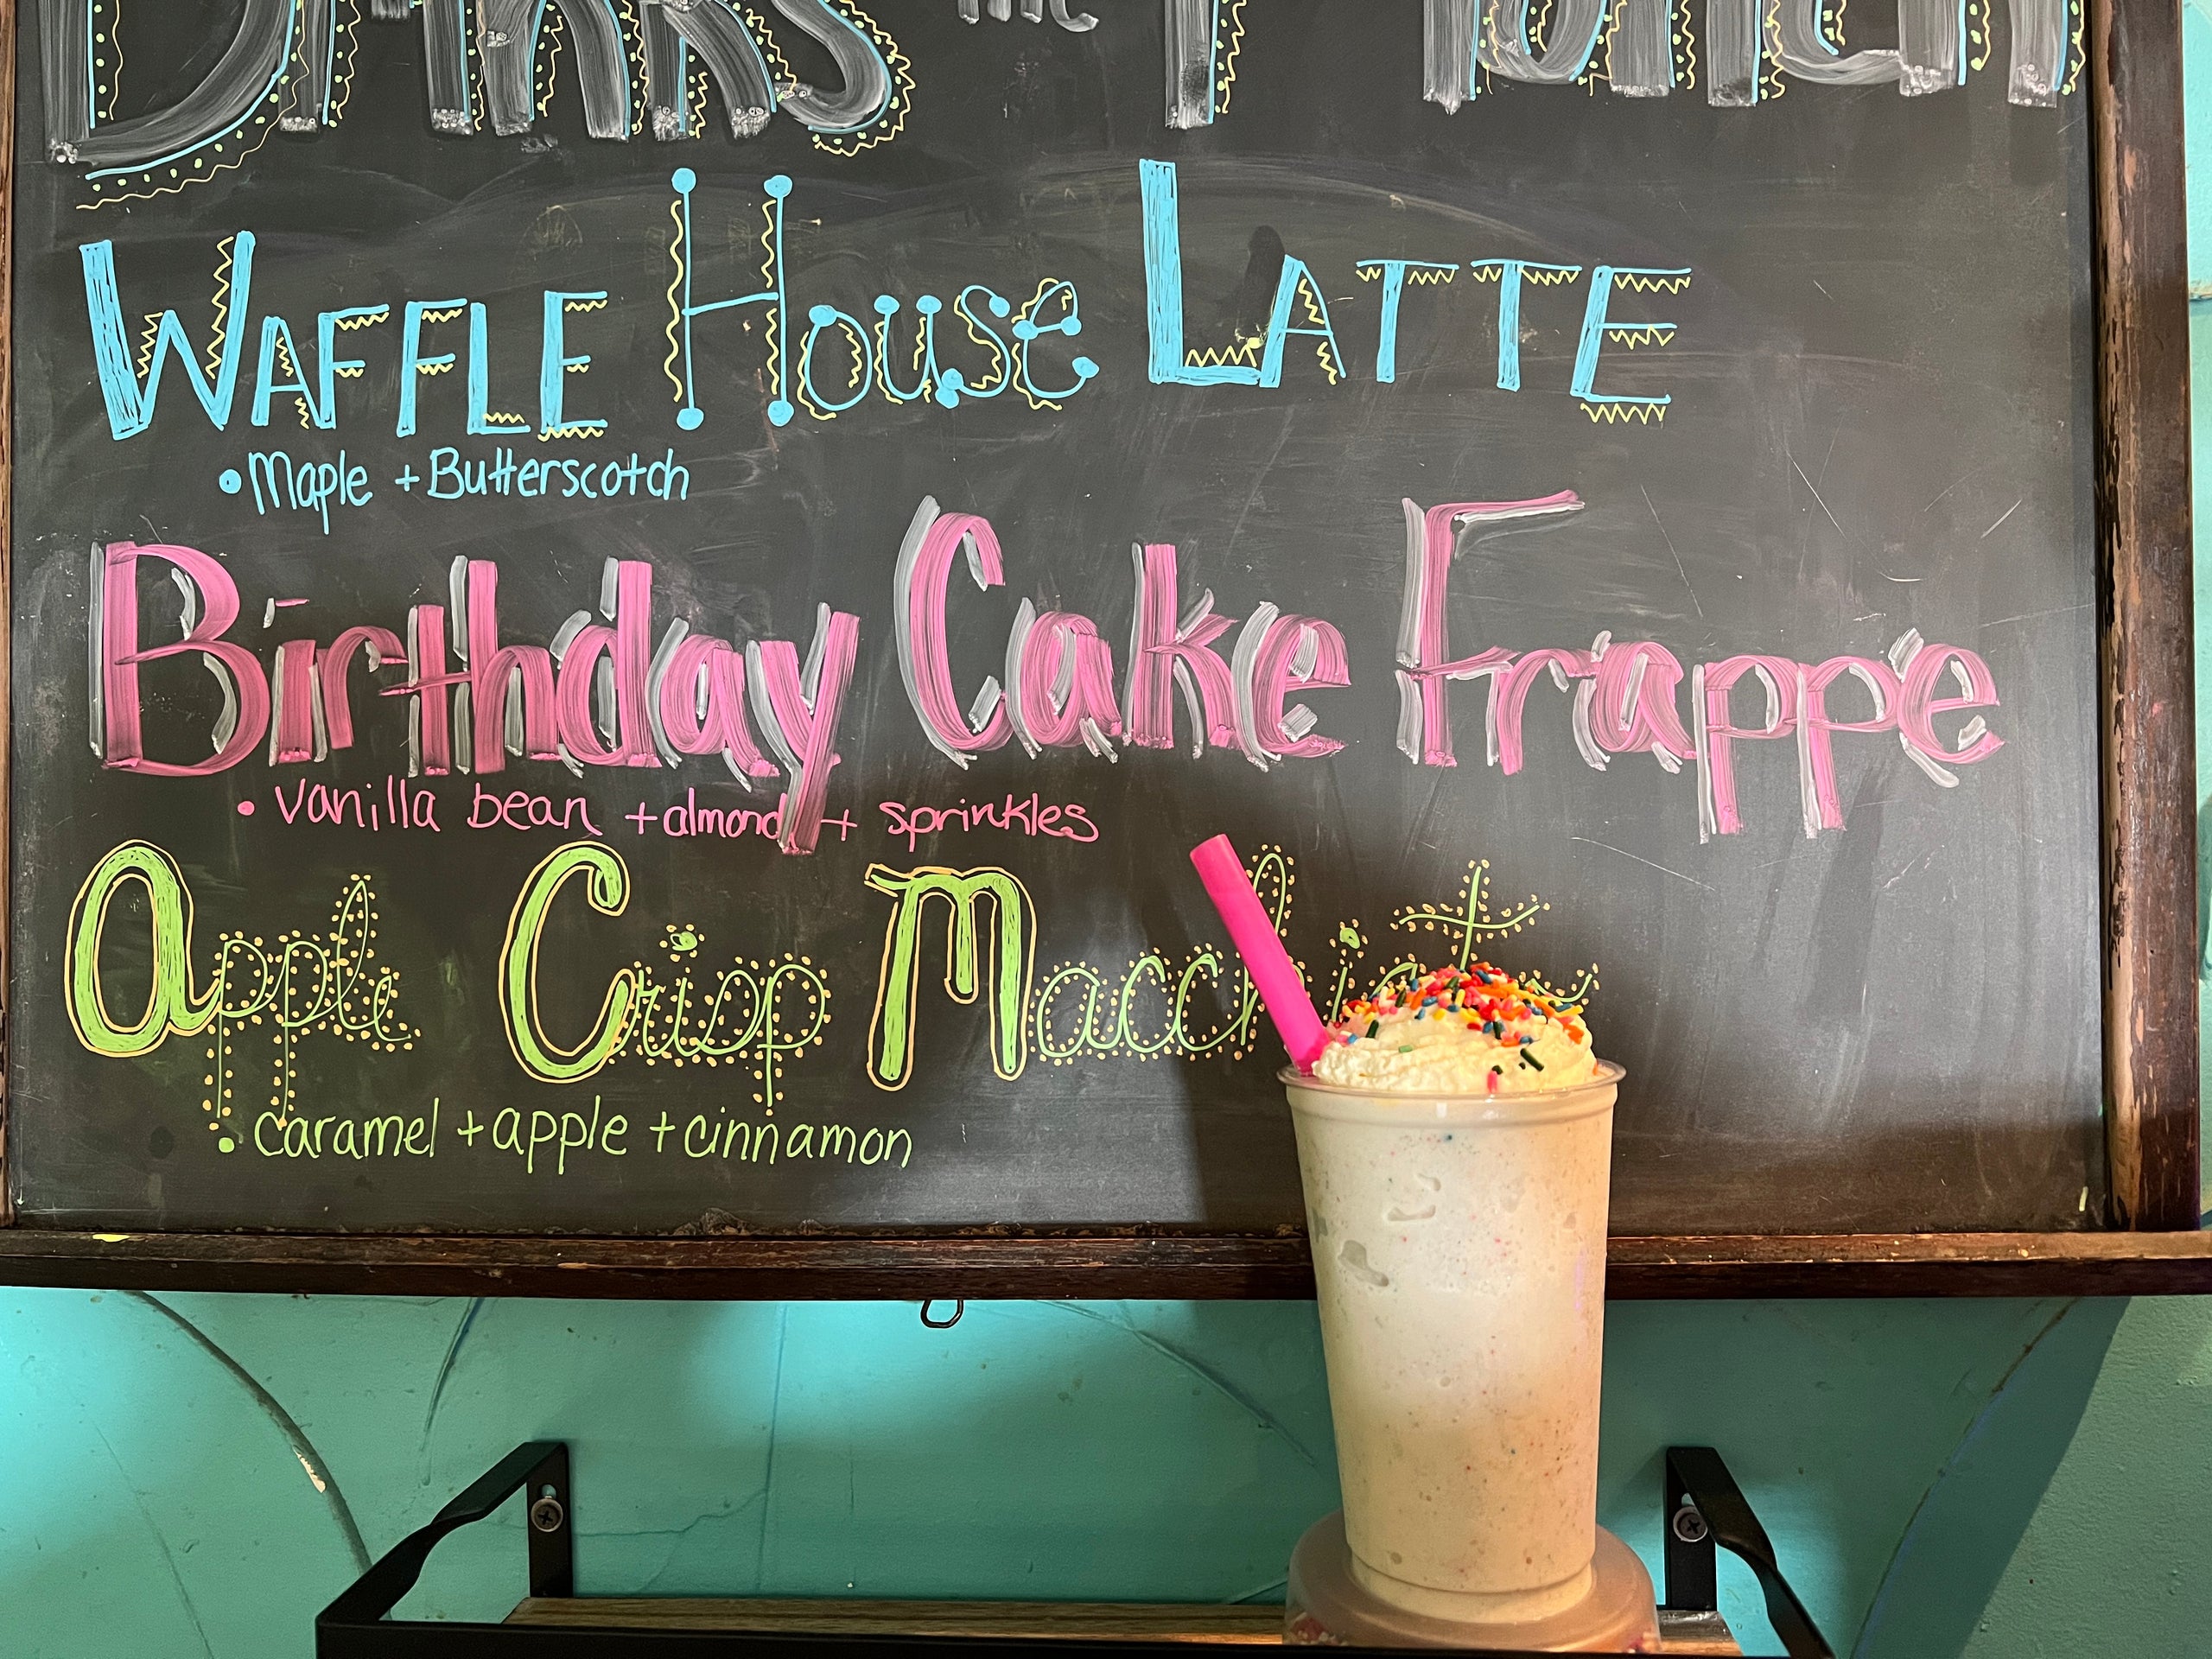 Drinks the Month
WAFFLE HOUSE LATTE
• Maple + Butterscotch
Birthday Cake Frappe
• vanilla bean + almond + sprinkles
Apple Crisp Macchiato
• caramel + apple + cinnamon